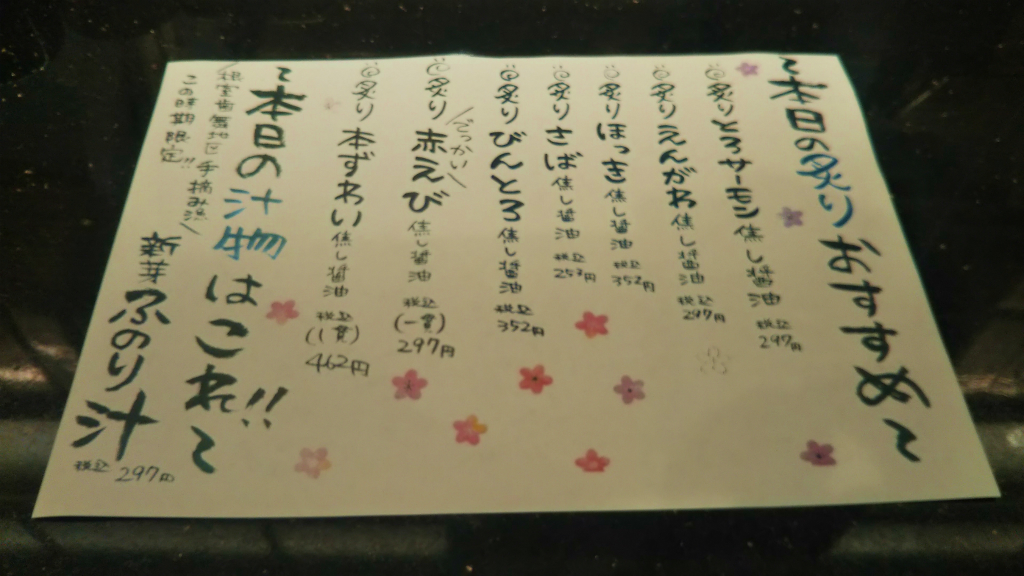 〜本日の炙りおすすめ〜
炙りとろサーモン 焦し醤油 税込 297円
炙りえんがわ 焦し醤油 税込 297円
炙りほっき 焦し醤油 税込 352円
炙りさば 焦し醤油 税込 253円
炙りびんとろ 焦し醤油 税込 352円
\でっかい/
炙り赤えび 焦し醤油 税込 (一貫) 297円
炙り本ずわい 焦し醤油 税込 (1貫) 462円
〜本日の汁物はこれ!!〜
\根室歯舞地区手摘み漁/
この時期限定!!
新芽ふのり汁 税込 297円